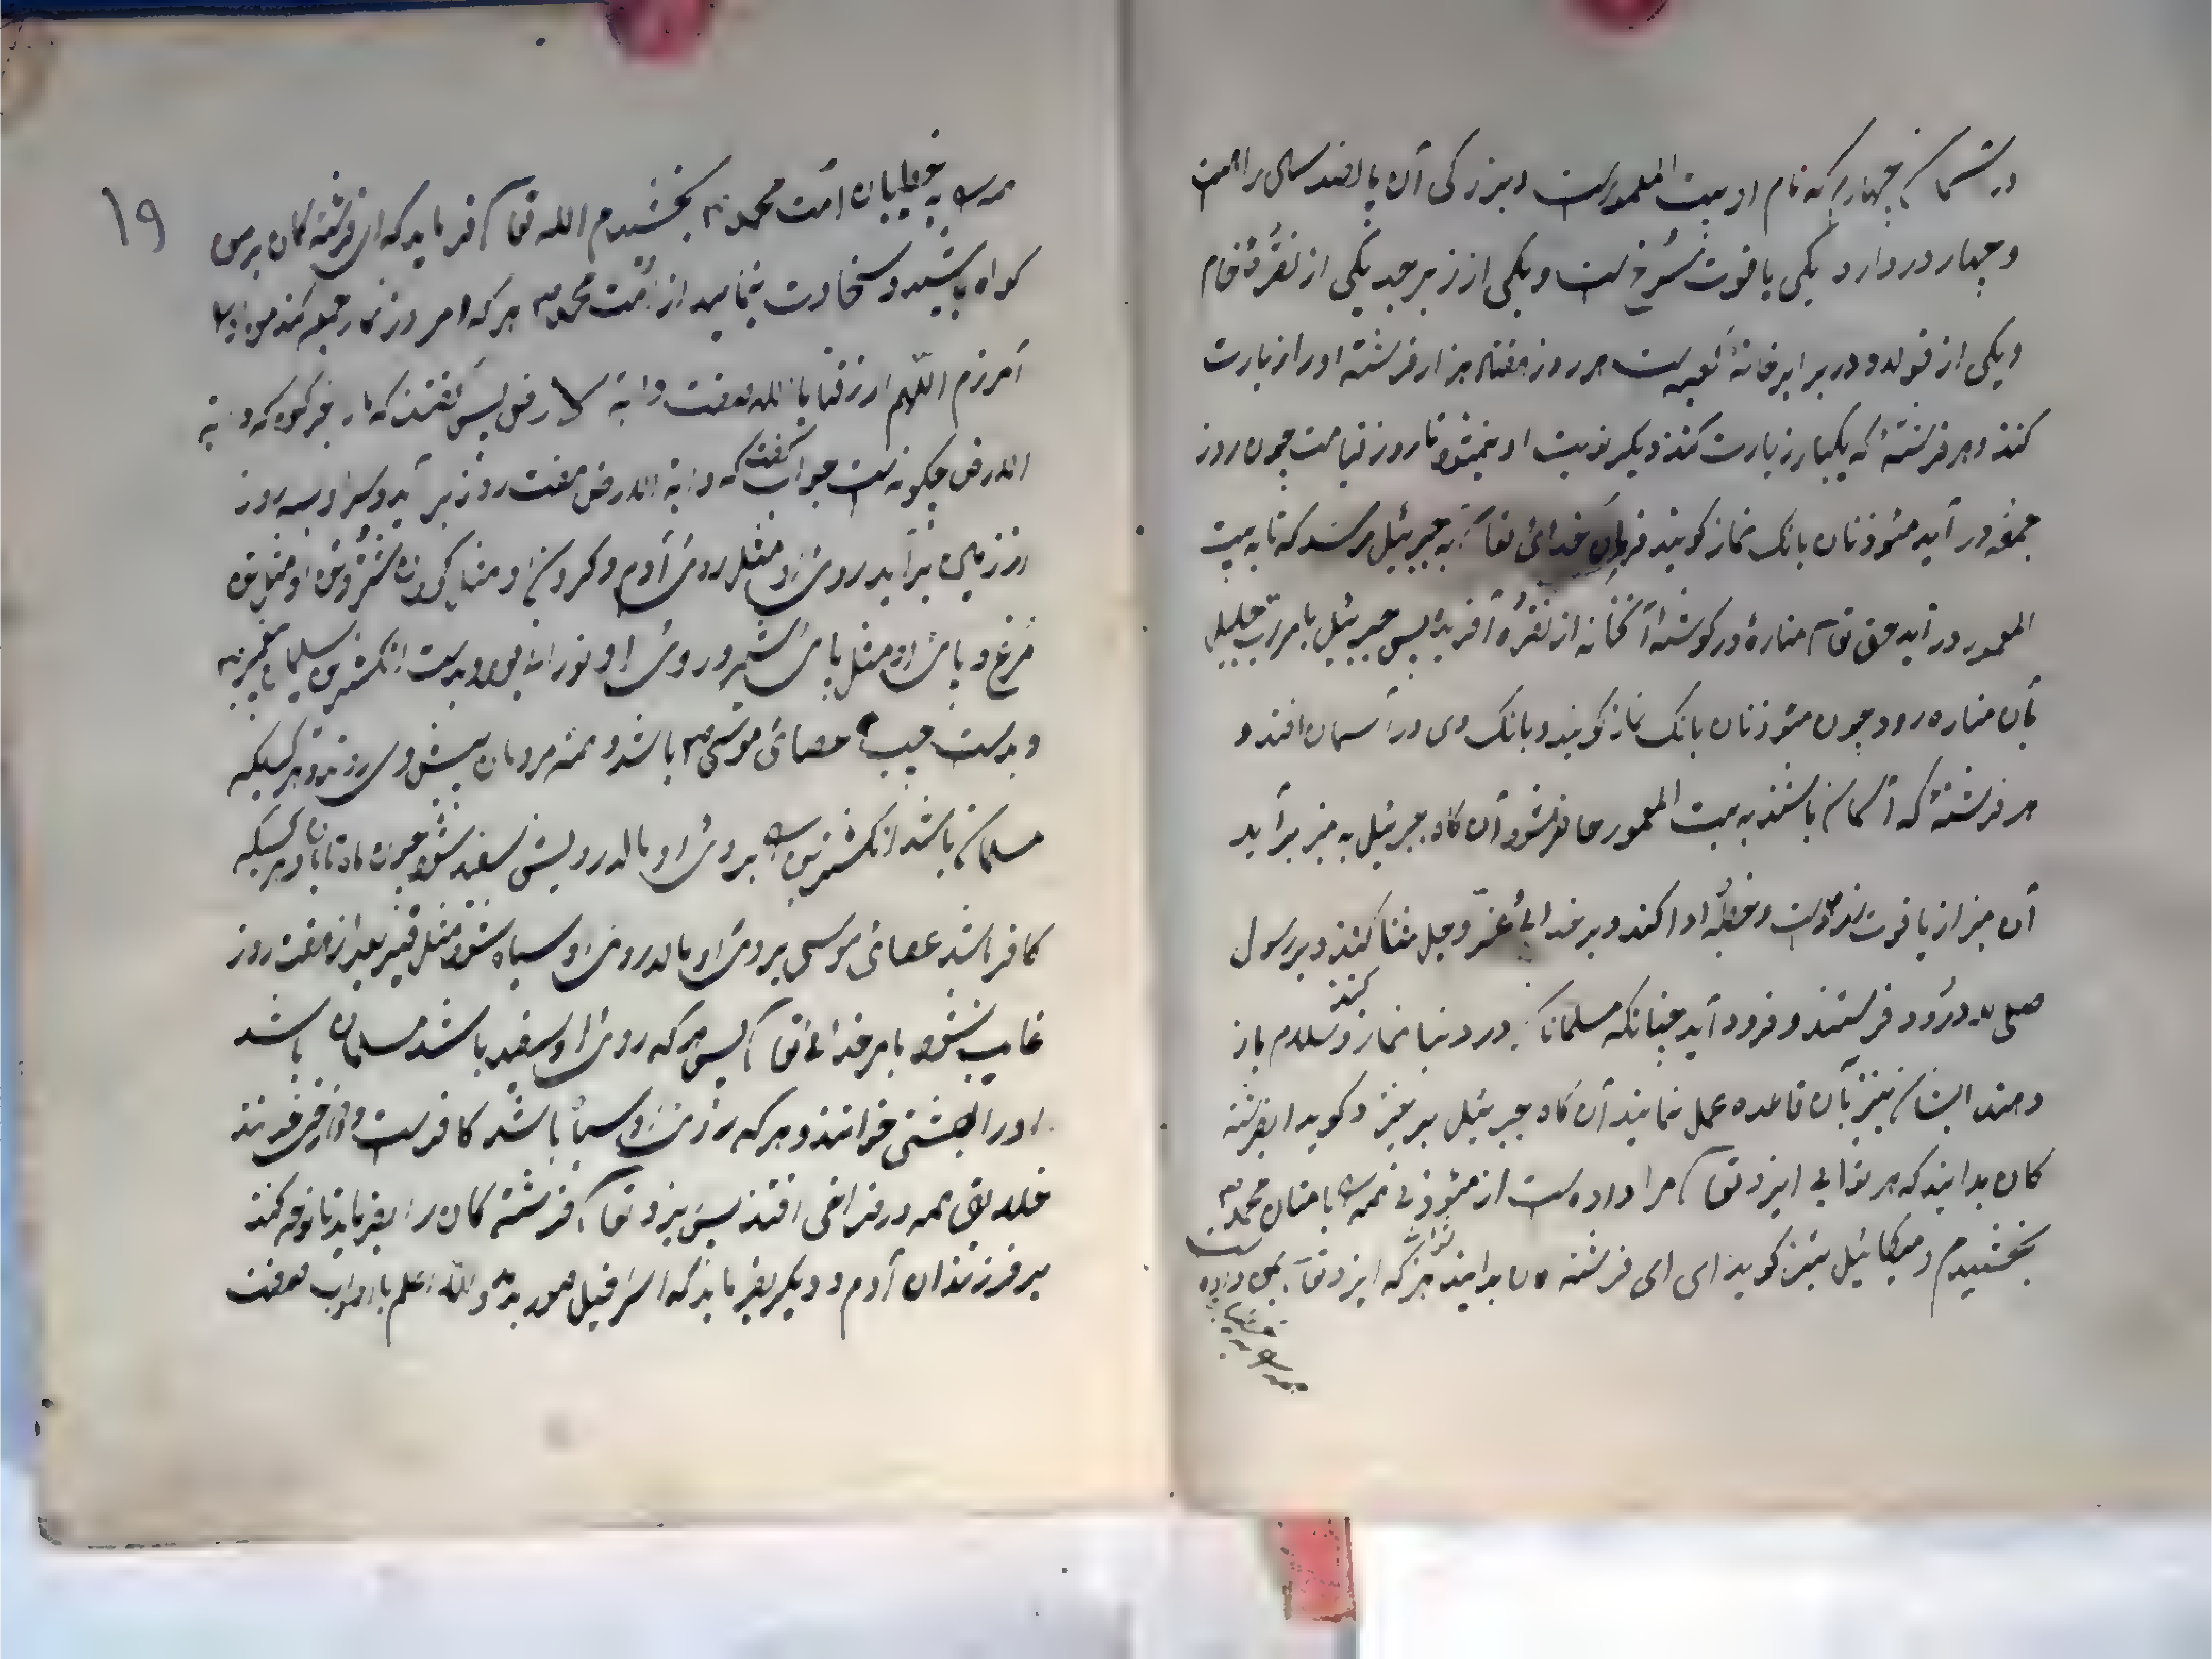 در آسمان چهارم که نام او بیت المعمورست و بزرگی آن پانصد ساله راهست
و چهار در دارد یکی یاقوت سُرخ است و یکی از زبرجد یکی از نقرهٔ خام
و یکی از و در برابر خانهٔ کعبه است هر روز هفتاد هزار فرشته او را زیارت
کنند و هر فرشتهٔ که یکبار زیارت کند دیگر نوبت او نمیشود تا روز قیامت چون روز
جمعه در آید مئوذنان بانک نماز کویند فرمان خدای تعا به جبرئیل رسد که تا به بیت
المعمور در آید حق تعا منارهٔ در کوشهٔ آنخانه از نقره آفریده پس جبرئیل بامر رب جلیل
بآن مناره رود چون مئوذنان بانک نماز کویند و بانک وی در آسمان افتد و
هر فرشتهٔ که آسمان باشند به بیت المعمور حاضر شود آن کاه جبرئیل به منبر بر آید
آن منبر از یاقوت و خطبه ادا کند و بر خدای عزّ و جل ثنا کنند و بر رسول
صلی الله درود فرستند و فرود آید چنانکه مسلمانان در دنیا نماز کنند و سلام باز
دهند ایشان نیز بآن قاعده عمل نمایند آن کاه جبرئیل بر خیزد کوید ای فرشته
کان بدانید که هر ثوابی ایزد تعا مرا داده ست از مئوذنی همه را بامتان محمد
بخشیدم و میکائیل نیز کوید ای ای فرشته کان بدانید هر ثوابی که ایزد تعا بمن داده است
همه را به خطیبان امّت محمد بخشیدم الله تعا فرماید که ای فرشته کان بر من
کواه باشید و سخاوت بنمایید از اُمت محمد هر که امروز نماز جمعه کند من او را
آمرزم اللّهم ارزقنا دابة الارض پس کفتند که یا خبر کو که دابة
الارض چکونه است جواب کفت که دابة الارض هفت روز بر آید و سر او سه روز
از زمین برآید روی او مثل روی آدم و کردن او مثل کردن شتر و تن او مثل تن
مُرغ و پای او مثل پای شیر و روی او نورانی بود و بدست انکشترین سلیمان پیغمبر
و بدست چپ عصای موسی باشد و همه مردمان پیش وی روند و هر کسیکه
مسلمان باشد انکشترین را بروی او بمالد رویش سفید شود چون ماه تابان و هر کسیکه
کافر باشد عصای موسی بروی او بمالد روی او سیاه شود مثل قیر بعد از هفت روز
غایب شود بامر خدای تعا پس هر که روی او سفید باشد مسلمان باشد
او را بهشتی خوانند و هر که روی او سیاه باشد کافرست دوزخی خوانند
خلایق همه در فراخی افتند پس ایزد تعا فرشته کان را بفرماید تا نوحه کنند
بر فرزندان آدم و دیکر بفرماید که اسرافیل صور بدمد و الله اعلم بالصواب
۱۹